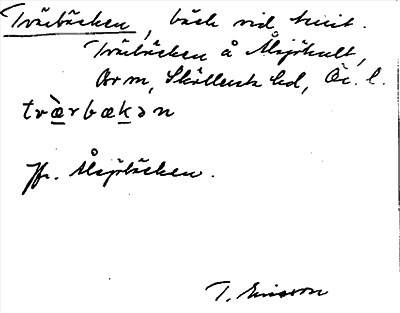 Tvärbäcken, bäck vid
Tvärbäcken å Älsjöhult,
Örm, Sköllersta hd, Ör. l.
tvæ̀rbækən
Jfr. Älsjöbäcken.
T. Ericsson